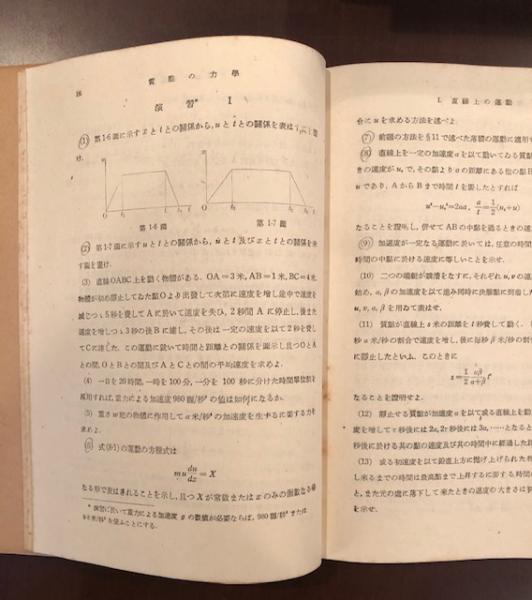 16 質點の力學
演習* I
(1) 第1·6圖に示す x と t との關係から, u と t との關係を表はす
け.
第1·6圖 第1·7圖
(2) 第1·7圖に示す u と t との關係から, u̇ と t 及び x と t との關係を示
す圖を書け.
(3) 直線OABC上を動く物體がある. OA=3米, AB=1米, BC=4米.
物體が初め靜止してゐた點Oより出發して次第に速度を增し途中で速度を
減じつゝ5秒を費してAに於いて速度を失ひ, 2秒間Aに停止し, 後また
速度を增しつゝ3秒の後Bに達し, その後は一定の速度を以て2秒を費し
てCに達した. この運動に就いて時間と距離との關係を圖示し且つOとA
との間, OとBとの間及びAとCとの間の平均速度を求めよ.
(4) 一日を20時間, 一時を100分, 一分を100秒に分けた時間單位制を
採用すれば, 重力による加速度980糎/秒²の値は如何になるか.
(5) 重さw瓩の物體に作用してα米/秒²の加速度を生ずるに要する力を
求めよ.
(6) 式(8·1)の運動の方程式は
mu du/dx = X
なる形で表は得れることを示し, 且つXが常數または x のみの函數なる場
* 演習に於いて重力による加速度 g の數値が必要ならば, 980糎/秒² または
9.8米/秒² を使ふことにする.
1. 直線上の運動
合に u を求める方法を述べよ.
(7) 前題の方法を§11で述べた落體の運動に適用せ
(8) 直線上を一定の加速度 α を以て動いてゐる質點
きの速度が u₁ で, その點より a の距離にある他の點B
u であり, AからBまで時間 t を要したとすれば
u²−u₁²=2αa, a/t=1/2(u₁+u)
なることを證明し, 併せてABの中點を過るときの速
(9) 加速度が一定なる運動に於いては, 任意の時間
時間の中點に於ける速度に等しいことを示せ.
(10) 二つの端艇が競漕をなすに, それぞれ u, v の速
始め, α, β の加速度を以て進み同時に決勝點に到着した
u, v, α, β を用ねて表はせ.
(11) 質點が直線上 s 米の距離を t 秒費して動く.
秒 α 米/秒の割合で速度を增し, 後に每秒 β 米/秒の割合
に靜止したといふ. このときに
s=1/2 αβ/(α+β) t²
なることを證明せよ.
(12) 靜止せる質點が加速度 α を以て直線上を動
度を增して τ 秒後には 2α, 2τ 秒後には 3α, ……となると
秒後に於ける其の點の速度及び其の時間中に經過した距
(13) 或る初速度を以て鉛直上方に抛げ上げられた
し來るまでの時間は最高點まで上昇するに要する時間の
と, また元の處に落下して來たときの速度の大きさは初
を示せ.